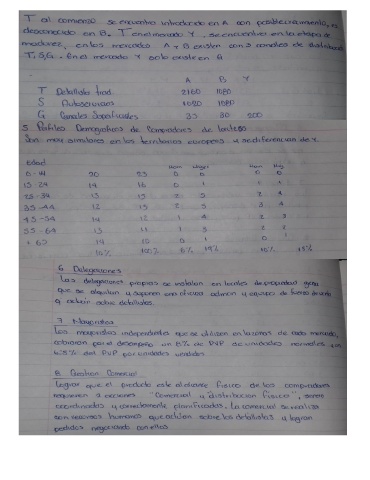 T al comienzo se encuentra introducido en A con posible crecimiento, es
desconocido en B. T en el mercado Y, se encuentra en la etapa de
madurez, en los mercados A y B existen con 3 canales de distribución
T, S, G. En el mercado Y solo existe en G
A B Y
T Detallista trad. 2160 1080
S Autoservicios 1080 1080
G Canales Superficiales 30 30 200
5 Perfiles Demograficos de Compradores de
Son mas similares en los territorios europeos y se diferencian de Y.
Edad Hom Mujer Hom Muj
0-14 20 23 0 0 0 0
15-24 14 16 0 1
25-34 13 15 2 5
35-44 12 13 2 5 3 4
45-54 14 12 1 4 2 3
55-64 13 11 1 3 2 2
+ 65 14 10 0 1 0 1
6% 19%
6 Delegaciones
Las delegaciones propias se instalan en locales de propiedad
que se alquilan y suponen una oficina admon y equipo de fuerza de venta
detallistas.
7 Mayoristas
Los mayoristas independientes que se utilicen en la zona de cada mercado,
por el desempeño un 8% de PVP de unidades normales y un
del PVP por unidades vendidas.
8. Gestion Comercial
Lograr que el producto este al alcance fisico de los compradores
requieren 2 acciones "Comercial y distribucion fisica", seran
coordinadas y correctamente planificadas. La comercial se realiza
con recursos humanos que actuan sobre los detallistas y logran
pedidos negociando con ellos.